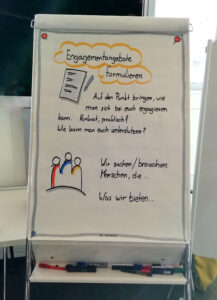 Engagementangebote
formulieren
Auf den Punkt bringen, wie
man sich bei euch engagieren
kann. Konkret, praktisch!
Wie kann man euch unterstützen?
Wir suchen / brauchen
Menschen, die ...
Was wir bieten ...